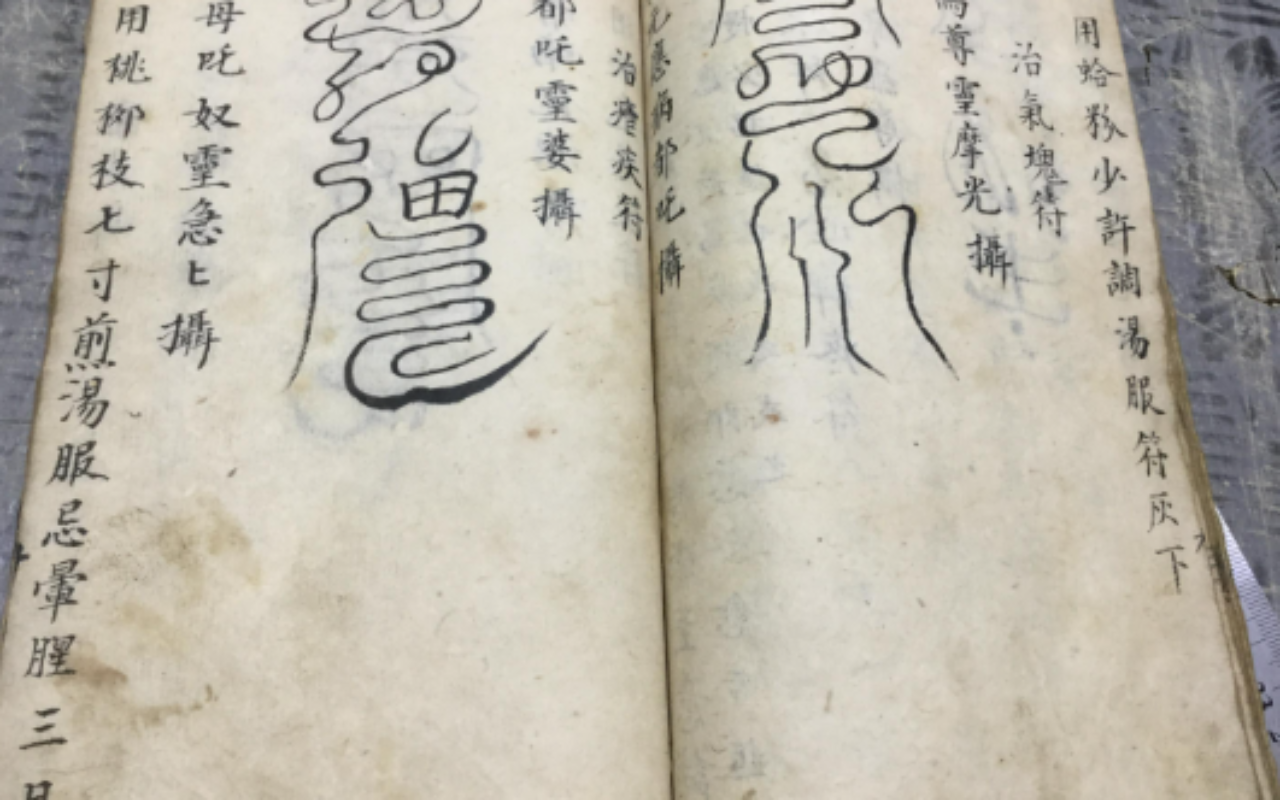 用蛤粉少許調湯服符灰下
治氣塊符
為尊靈摩光攝
病都吒攝
治瘧疾符
都吒靈婆攝
母吒奴靈急匕攝
用桃柳枝七寸煎湯服忌暈腥三日